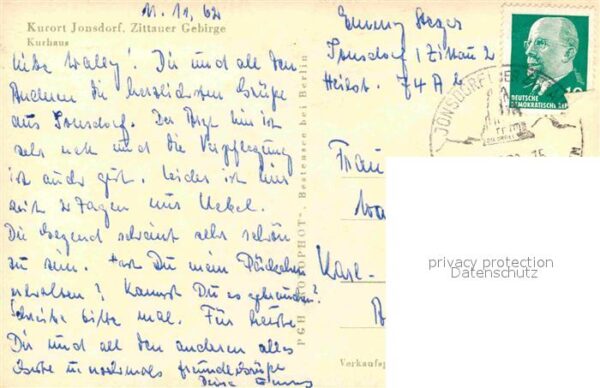 11. 11. 62
Kurort Jonsdorf, Zittauer Gebirge
Kurhaus
Liebe Wally! Dir und all den
Anderen die herzlichsten Grüße
aus Jonsdorf. Der Ort hier ist
sehr nett und die Verpflegung
ist auch gut. Leider ist hier
seit 2 Tagen nur Nebel.
Die Gegend scheint sehr schön
zu sein. Hast Du mein Päckchen
erhalten? Kannst Du es gebrauchen?
Schreibe bitte mal. Für heute
Dir und all den anderen alles
Gute u. nochmals freundl. Grüße
Deine
PGH "ROTOPHOT", Bestensee bei Berlin
Jonsdorf / Zittau 2
Heilst. 74 A
DEUTSCHE
DEMOKRATISCHE
10
JONSDORF
Frau
Karl-
Verkaufsp
privacy protection
Datenschutz